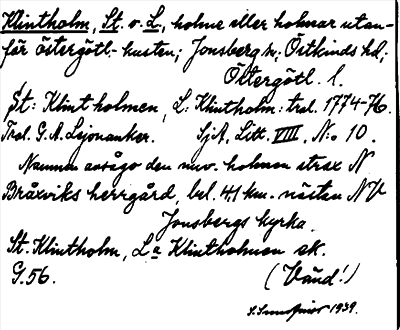 Klintholm, St. o. L., holme eller holmar utan-
för östergötl.-kusten; Jonsberg sn; Östkinds hd;
Östergötl. l.
St: Klint holmen, L: Klintholm: tral. 1774-76.
Tral. G. A. Lejonanker. SjA, Litt. VIII, No 10.
Namnen avsågo den nuv. holmen strax N
Bråxviks herrgård, bel. 4,1 km. nästan NV
Jonsbergs kyrka.
St. Klintholm, La Klintholmen ek.
G. 56. (Vänd!)
1939.